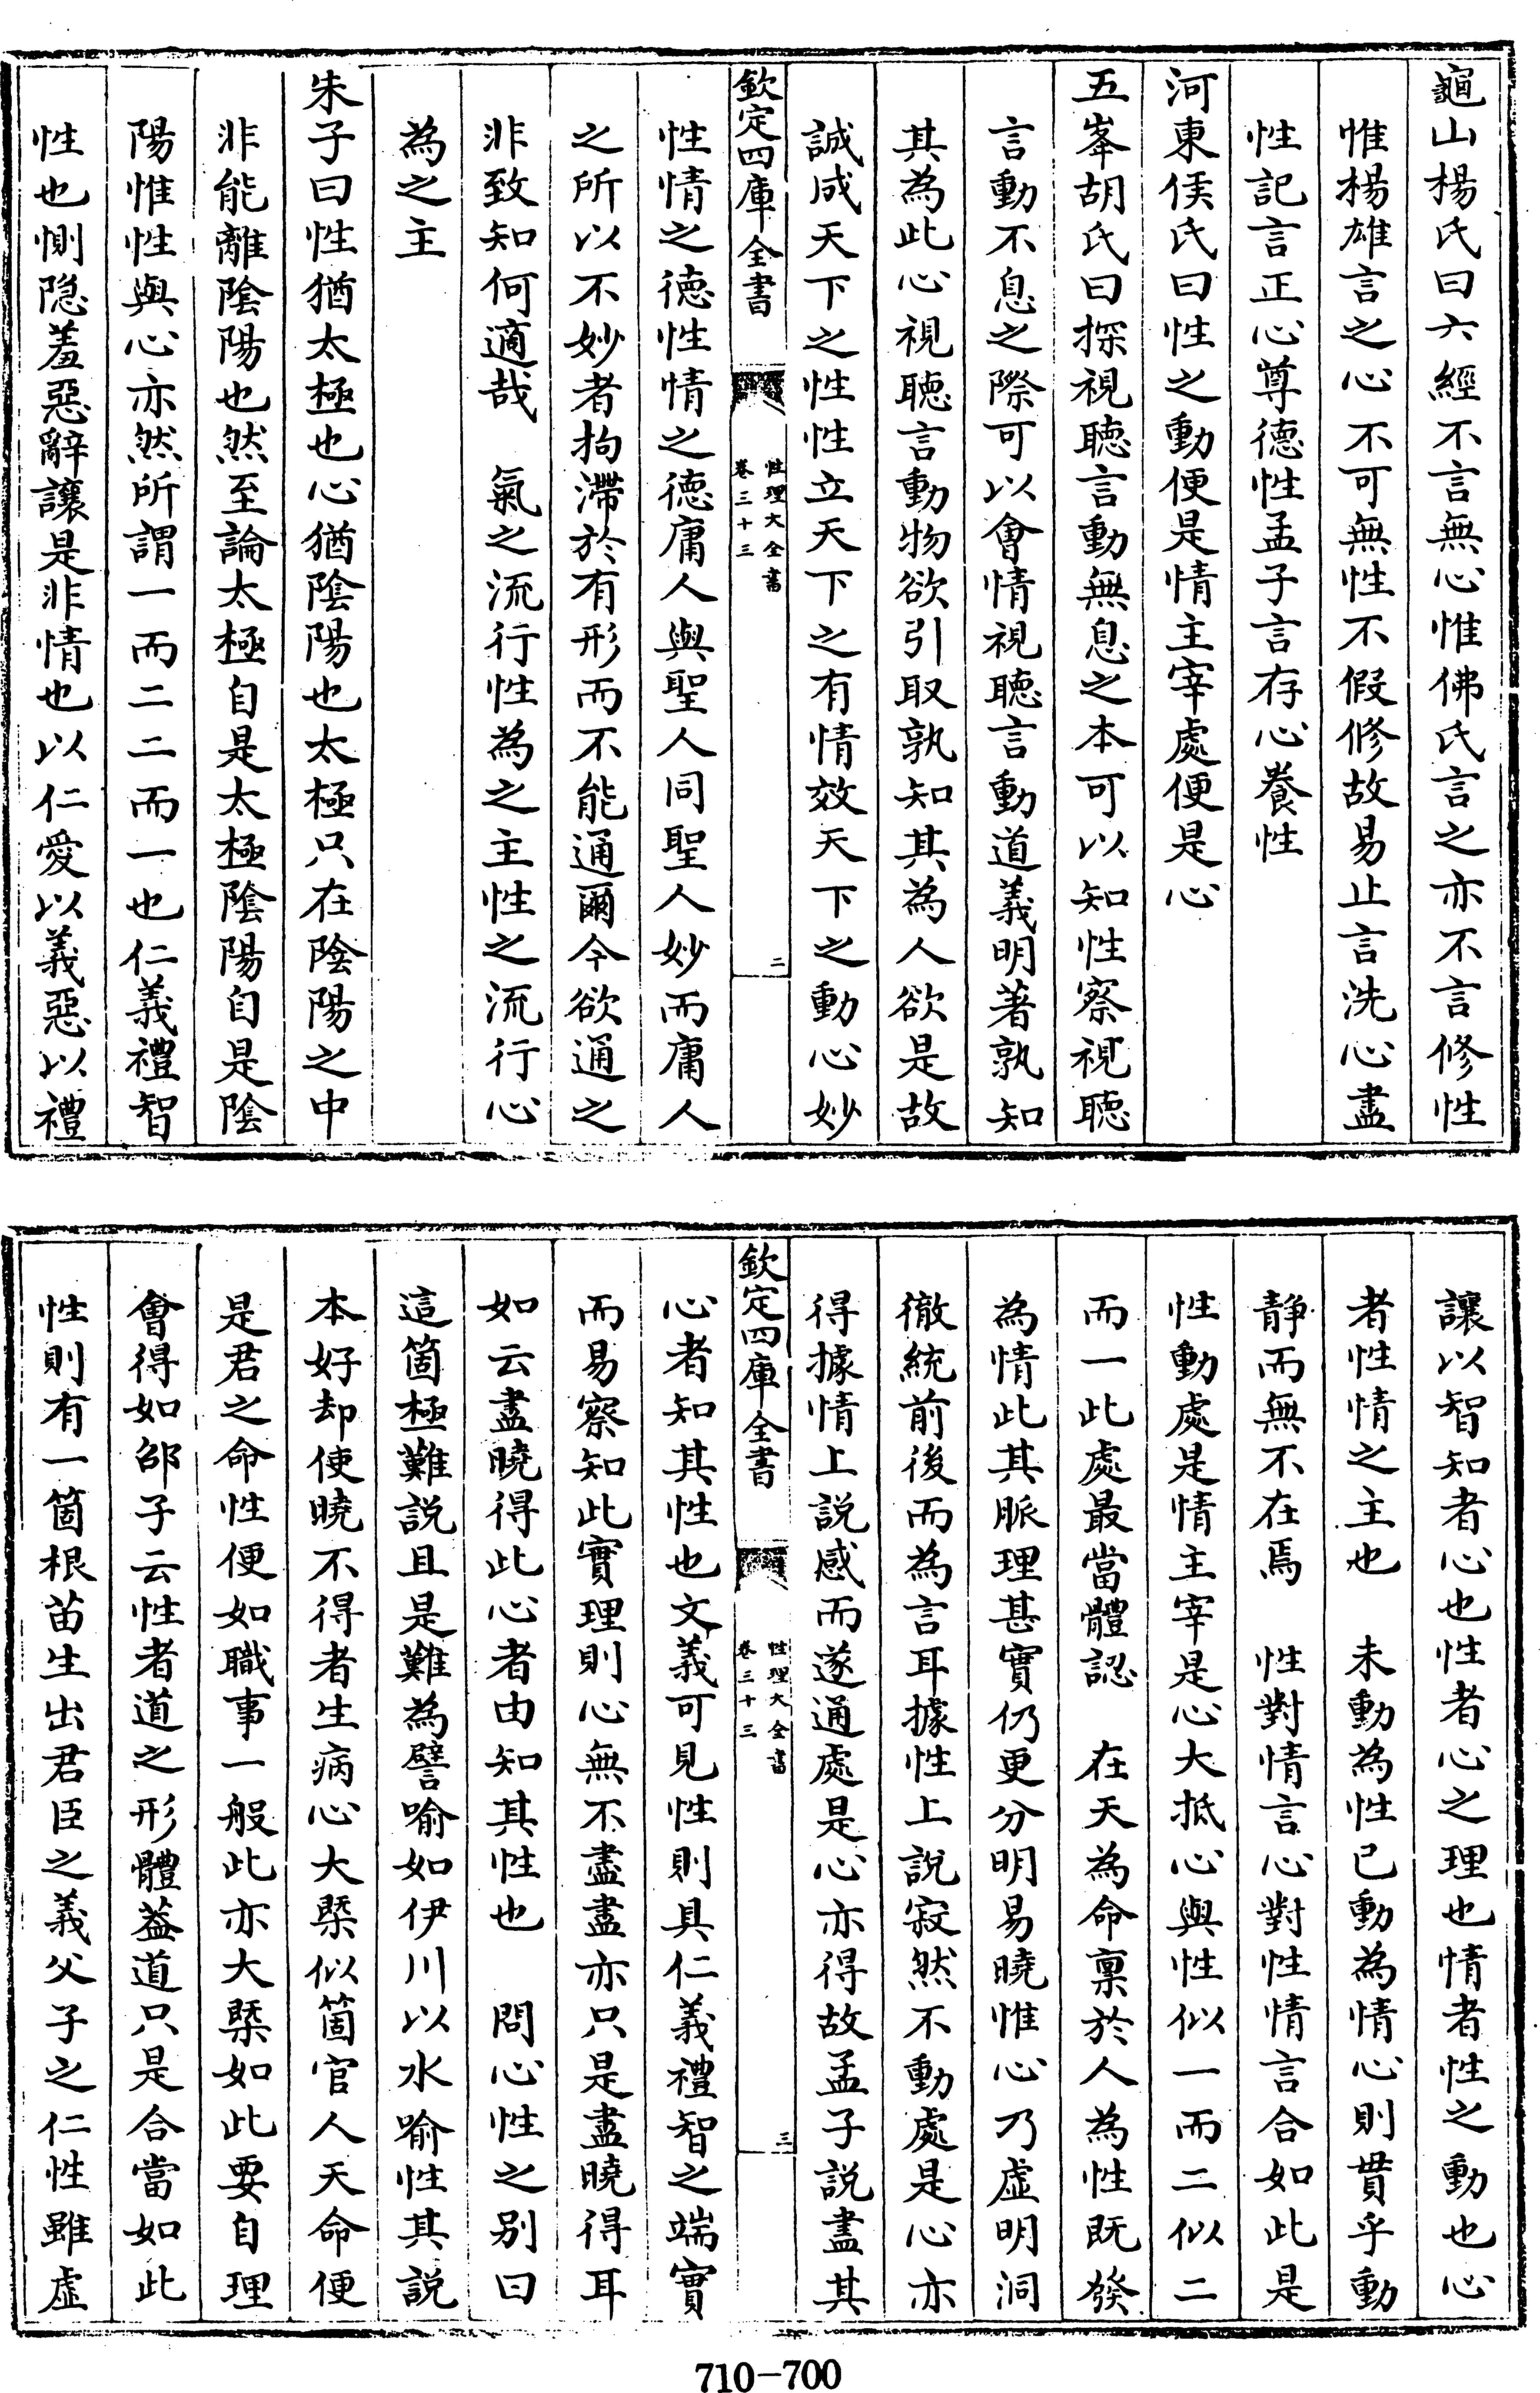 龜山楊氏曰六經不言無心惟佛氏言之亦不言修性
惟楊雄言之心不可無性不假修故易止言洗心盡
性記言正心尊德性孟子言存心養性
河東侯氏曰性之動便是情主宰處便是心
五峯胡氏曰探視聽言動無息之本可以知性察視聽
言動不息之際可以會情視聽言動道義明著孰知
其為此心視聽言動物欲引取孰知其為人欲是故
誠成天下之性性立天下之有情效天下之動心妙
欽定四庫全書
性理大全書
卷三十三
二
性情之德性情之德庸人與聖人同聖人妙而庸人
之所以不妙者拘滯於有形而不能通爾今欲通之
非致知何適哉　氣之流行性為之主性之流行心
為之主
朱子曰性猶太極也心猶陰陽也太極只在陰陽之中
非能離陰陽也然至論太極自是太極陰陽自是陰
陽惟性與心亦然所謂一而二二而一也仁義禮智
性也惻隱羞惡辭讓是非情也以仁愛以義惡以禮
讓以智知者心也性者心之理也情者性之動也心
者性情之主也　未動為性已動為情心則貫乎動
靜而無不在焉　性對情言心對性情言合如此是
性動處是情主宰是心大抵心與性似一而二似二
而一此處最當體認　在天為命稟於人為性既發
為情此其脈理甚實仍更分明易曉惟心乃虛明洞
徹統前後而為言耳據性上說寂然不動處是心亦
得據情上說感而遂通處是心亦得故孟子說盡其
欽定四庫全書
性理大全書
卷三十三
三
心者知其性也文義可見性則具仁義禮智之端實
而易察知此實理則心無不盡盡亦只是盡曉得耳
如云盡曉得此心者由知其性也　問心性之別曰
這箇極難說且是難為譬喻如伊川以水喻性其說
本好却使曉不得者生病心大槩似箇官人天命便
是君之命性便如職事一般此亦大槩如此要自理
會得如邵子云性者道之形體蓋道只是合當如此
性則有一箇根苗生出君臣之義父子之仁性雖虛
710-700